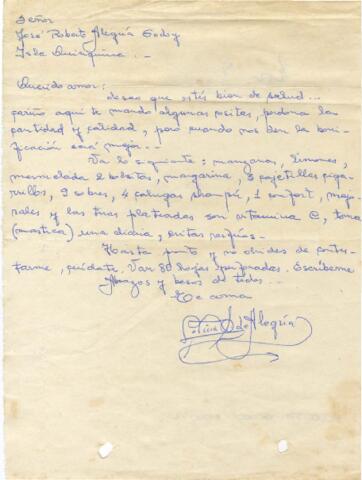 Señor
José Roberto Alegría Godoy
Isla Quiriquina.-
Querido amor:
deseo que estés bien de salud...
cariño aquí te mando algunas cositas, perdona la
cantidad y calidad, pero cuando nos den la boni-
ficación será mejor..-
Va lo siguiente: manzanas, limones,
mermelada 2 bolsitas, margarina, 3 cajetillas ciga-
rrillos, 9 sobres, 4 calugas shampú, 1 confort, mejo-
rales y las tiras plateadas son vitamina C, toma
(mastica) una diaria, evitas resfríos.-
Hasta pronto y no olvides de contes-
tarme, cuídate. Van 80 hojas perforadas. Escríbeme
Abrazos y besos de todos...
Te ama
de Alegría